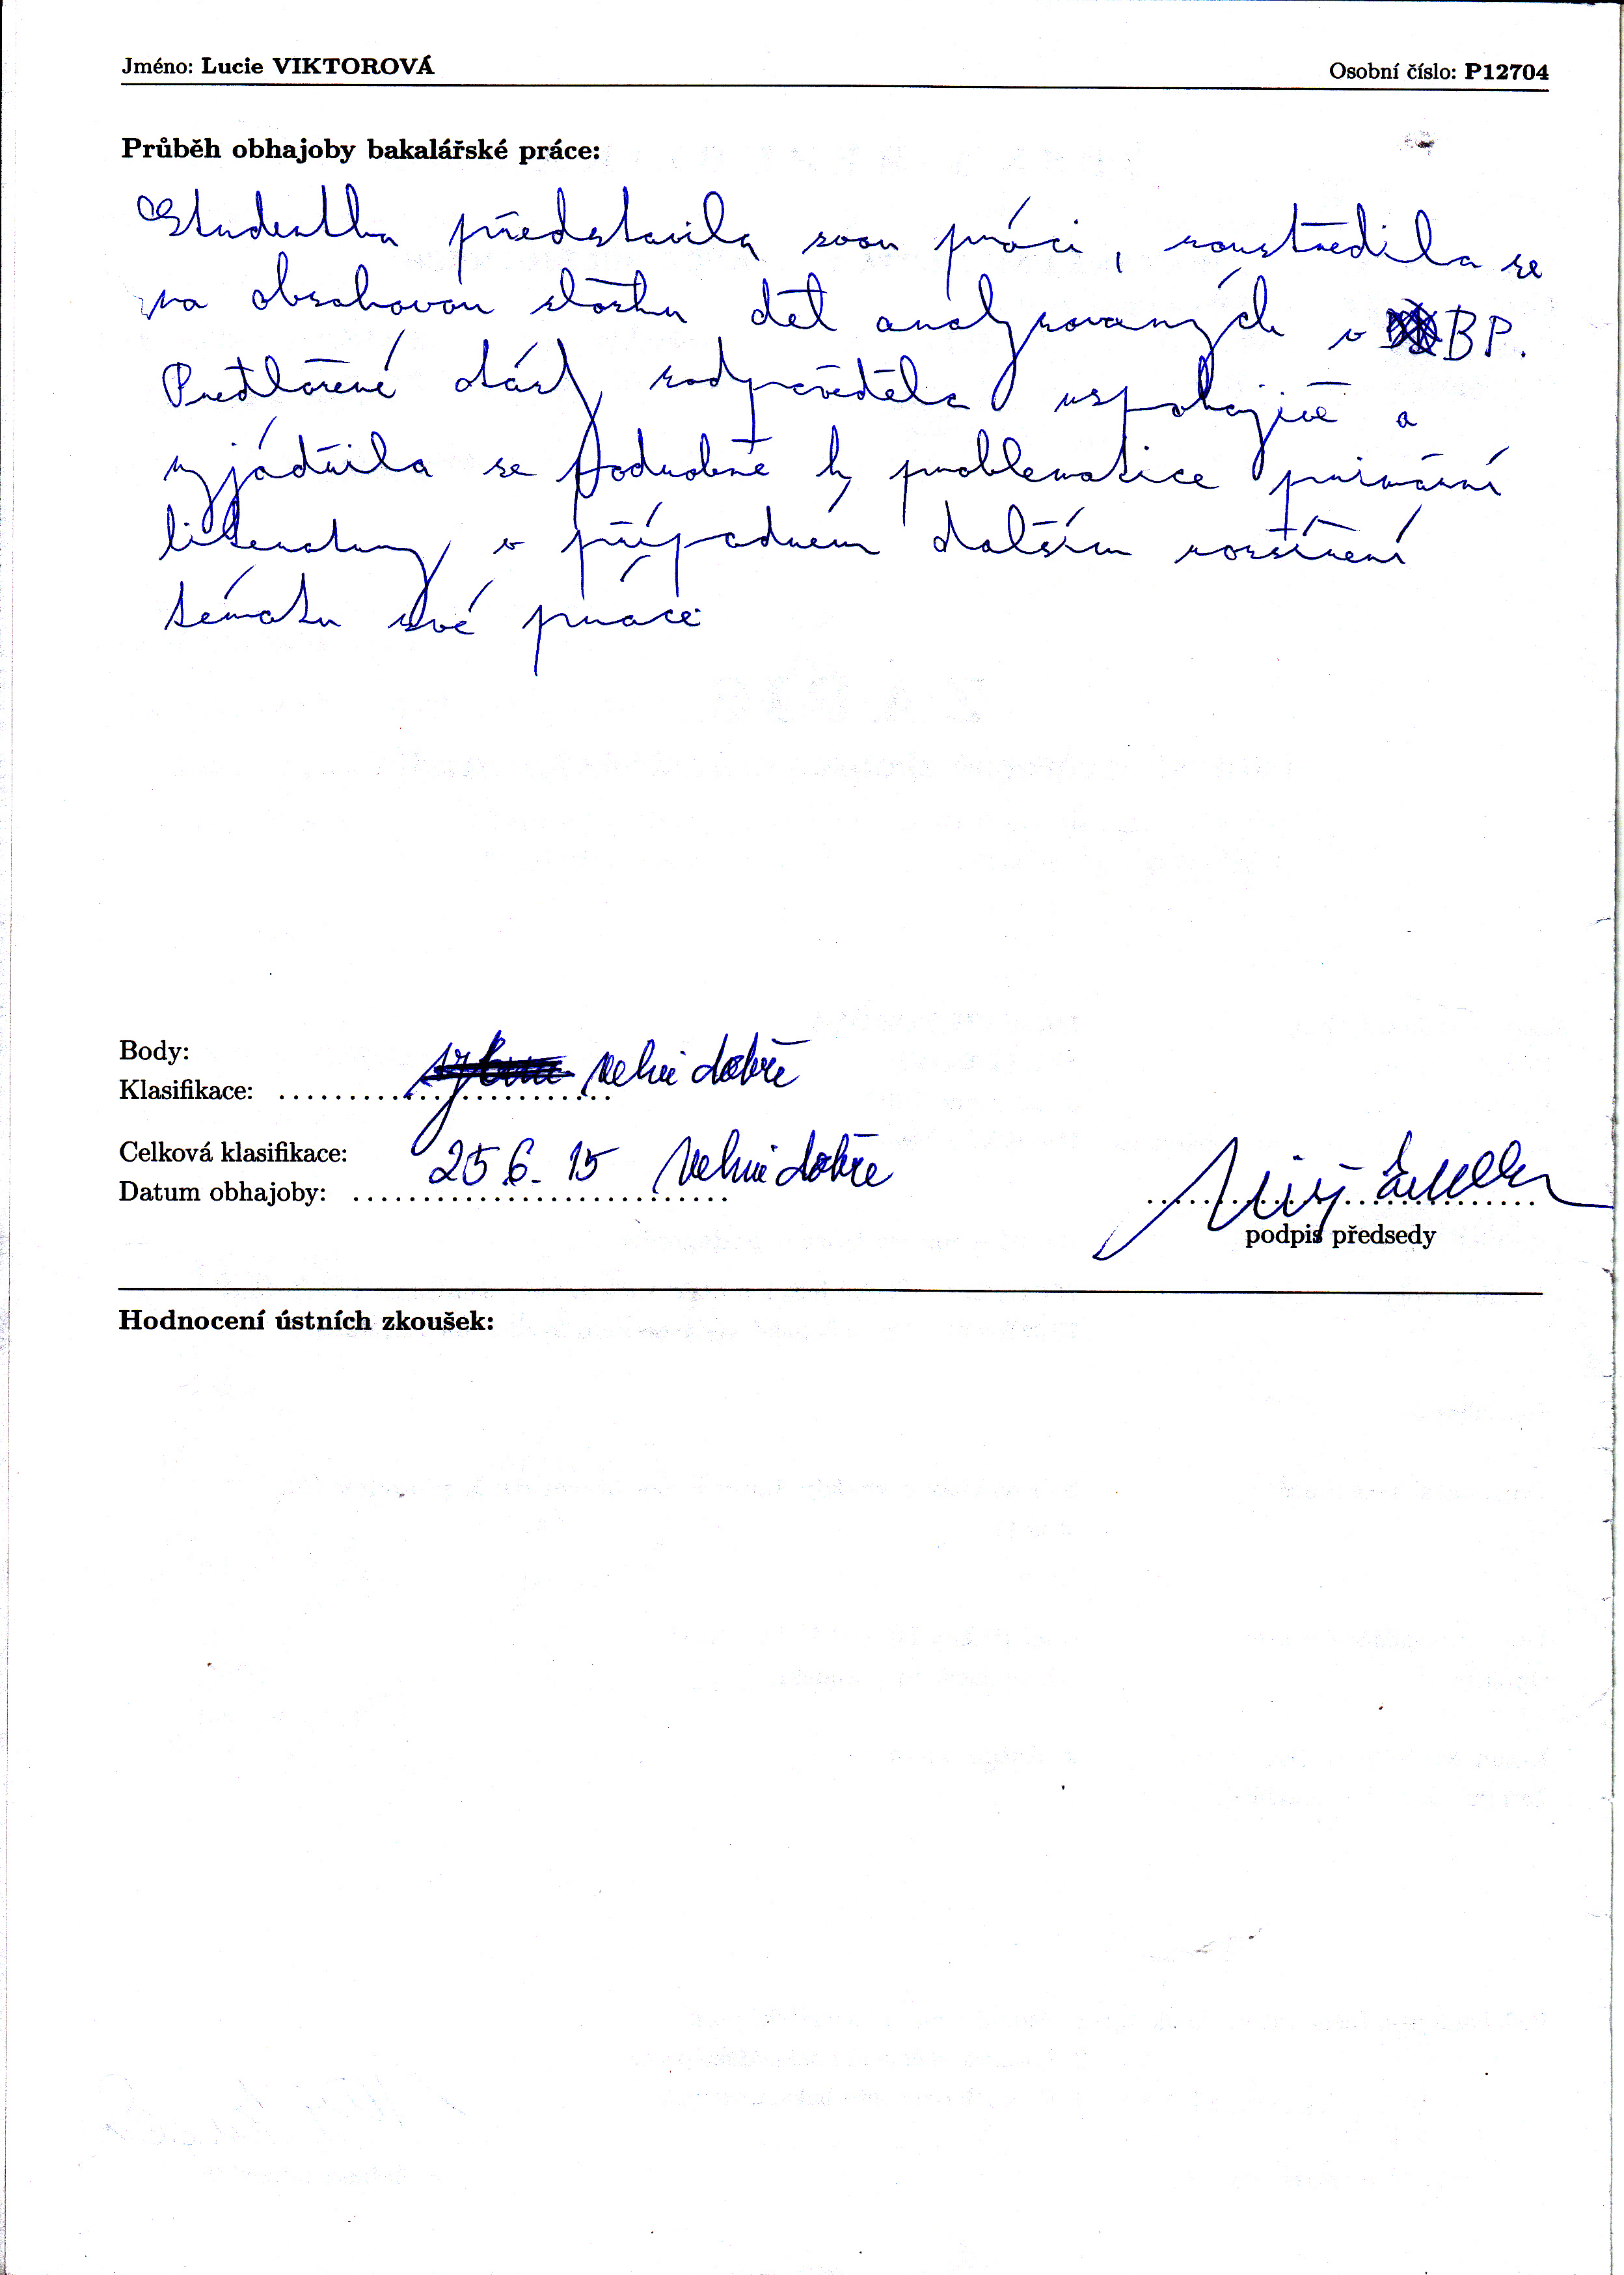 Jméno: Lucie VIKTOROVÁ
Osobní číslo: P12704
Průběh obhajoby bakalářské práce:
Studentka představila svou práci, soustředila se
na obsahovou složku děl analyzovaných v BP.
Předložené otázky zodpověděla uspokojivě a
vyjádřila se podrobně k problematice primární
literatury v případném dalším rozšíření
tématu své práce.
Body:
Klasifikace: velmi dobře
Celková klasifikace:
Datum obhajoby: 25 6. 15 velmi dobře
podpis předsedy
Hodnocení ústních zkoušek: